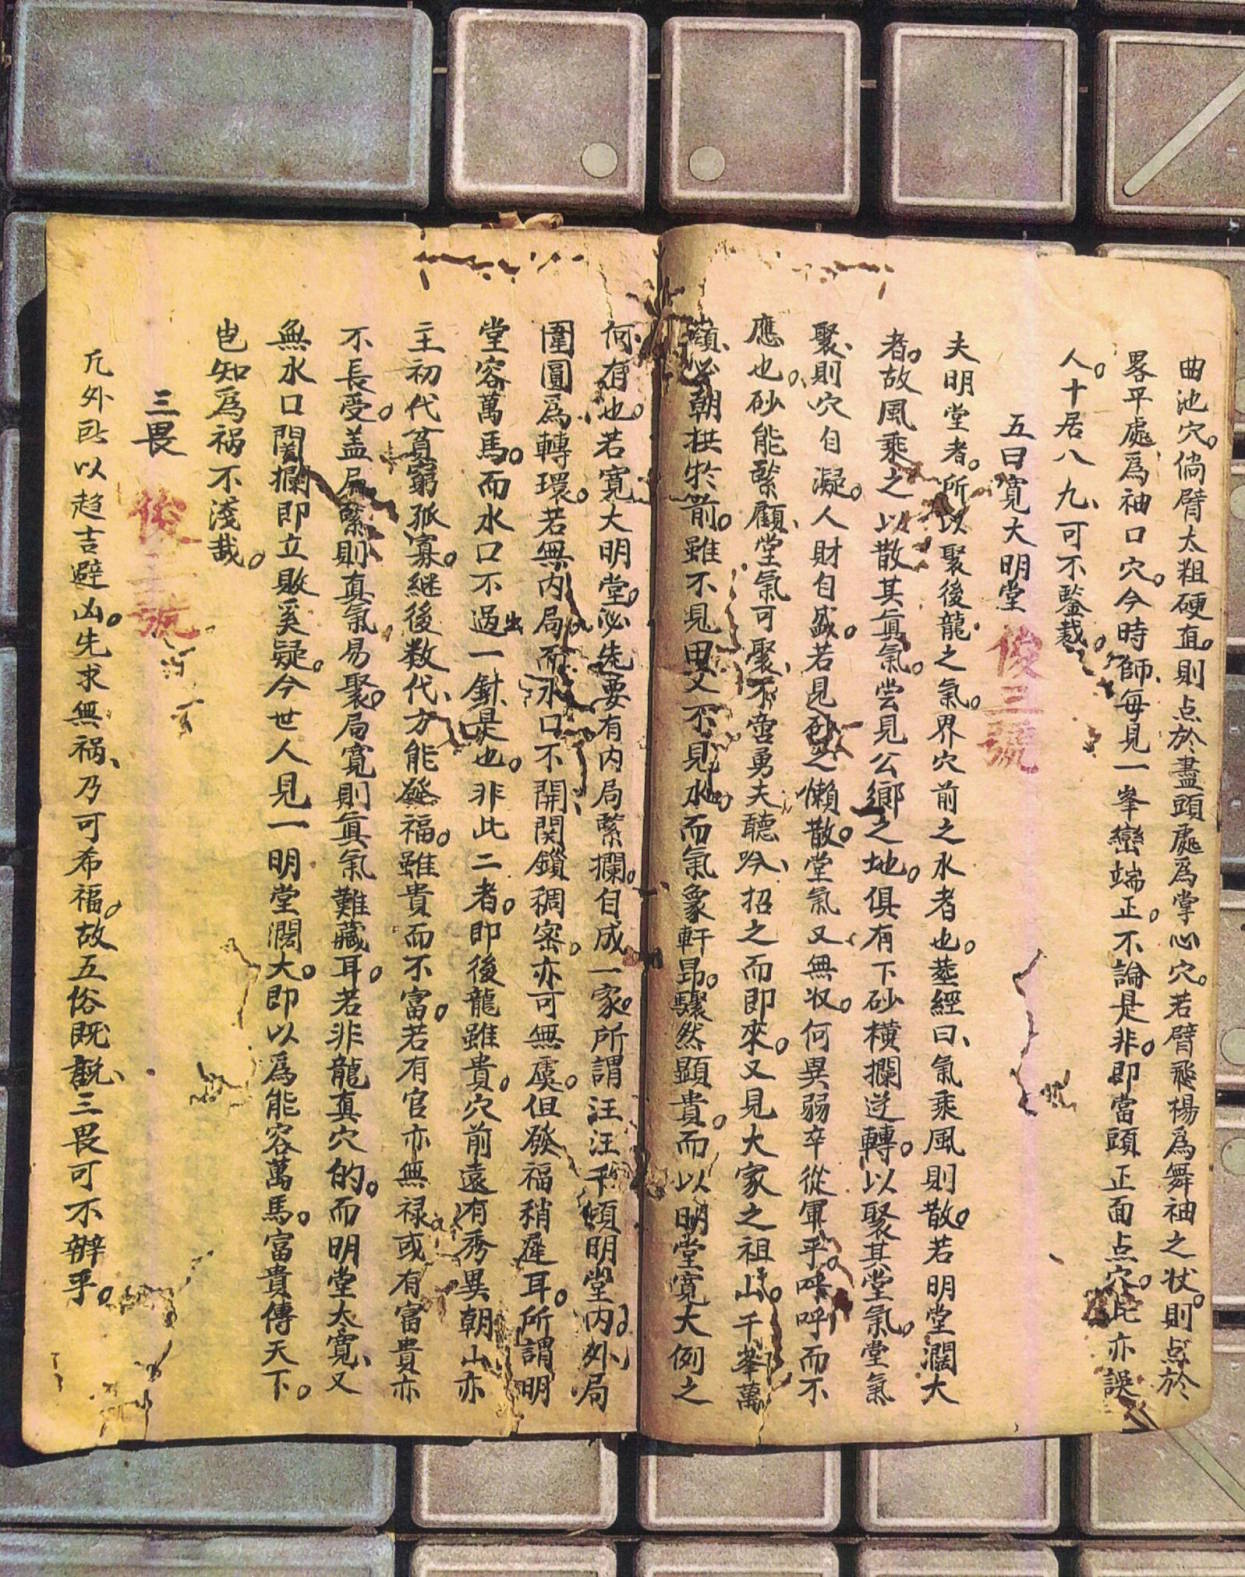 曲池穴。倘臂太粗硬直。則点於盡頭處爲掌心穴。若臂飛楊爲舞袖之状。則点於
畧平處爲袖口穴。今時師每見一峯巒端正。不論是非。即當頭正面点穴。此亦誤
人。十居八九、可不鑒哉。
五曰寛大明堂 俊三號
夫明堂者。所以聚後龍之氣。界穴前之水者也。塟經曰、氣乘風則散。若明堂濶大
者。故風乘之以散其真氣。尝見公鄉之地。俱有下砂横攔逆轉。以聚其堂氣。堂氣
聚、則穴自凝。人財自盛。若見砂之懶散。堂氣又無收。何異弱卒從軍乎。呼呼而不
應也。砂能緊顧、堂氣可聚、不啻勇夫聽吟、招之而即來。又見大家之祖山。千峯萬
嶺、必朝拱扵前。雖不見田又不見水。而氣象軒昂。驟然顯貴。而以明堂寛大例之
何有也。若寛大明堂。必先要有内局緊攔。自成一家。所謂汪汪千頃明堂。内外局
圍圓爲轉環。若無内局而水口不開関鎖稠密。亦可無虞。但發福稍遲耳。所謂明
堂容萬馬。而水口不過一針是也。非此二者。即後龍雖貴。穴前遠有秀異朝山亦
主初代貧窮孤寡。継後数代、方能發福。雖貴而不富。若有官亦無禄或有富貴亦
不長受。盖局緊則真氣易聚。局寛則真氣難藏耳。若非龍真穴的。而明堂太寛、又
無水口関攔即立敗奚疑。今世人見一明堂濶大。即以爲能容萬馬。富貴傳天下。
岂知爲祸不淺哉。
三畏 俊三號
凢外卧以趋吉避凶。先求無祸、乃可希福。故五俗既説、三畏可不辦乎。